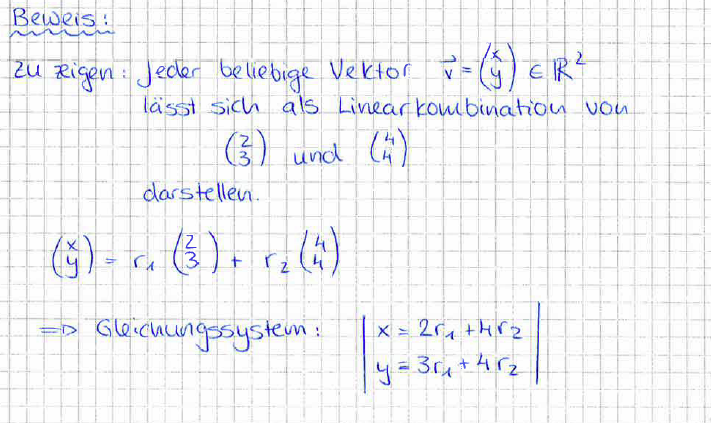 Beweis:
zu zeigen: Jeder beliebige Vektor v⃗ = (x y) ∈ ℝ²
lässt sich als Linearkombination von
(2 3) und (4 4)
darstellen.
(x y) = r₁ (2 3) + r₂ (4 4)
=> Gleichungssystem: | x = 2r₁ + 4r₂ |
| y = 3r₁ + 4r₂ |